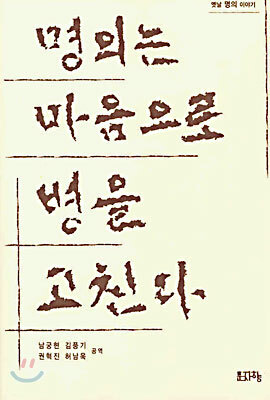 옛날 명의 이야기
명의는
마음으로
병을
고친다.
남궁현 김풍기
권혁진 허남욱 공역
문자향